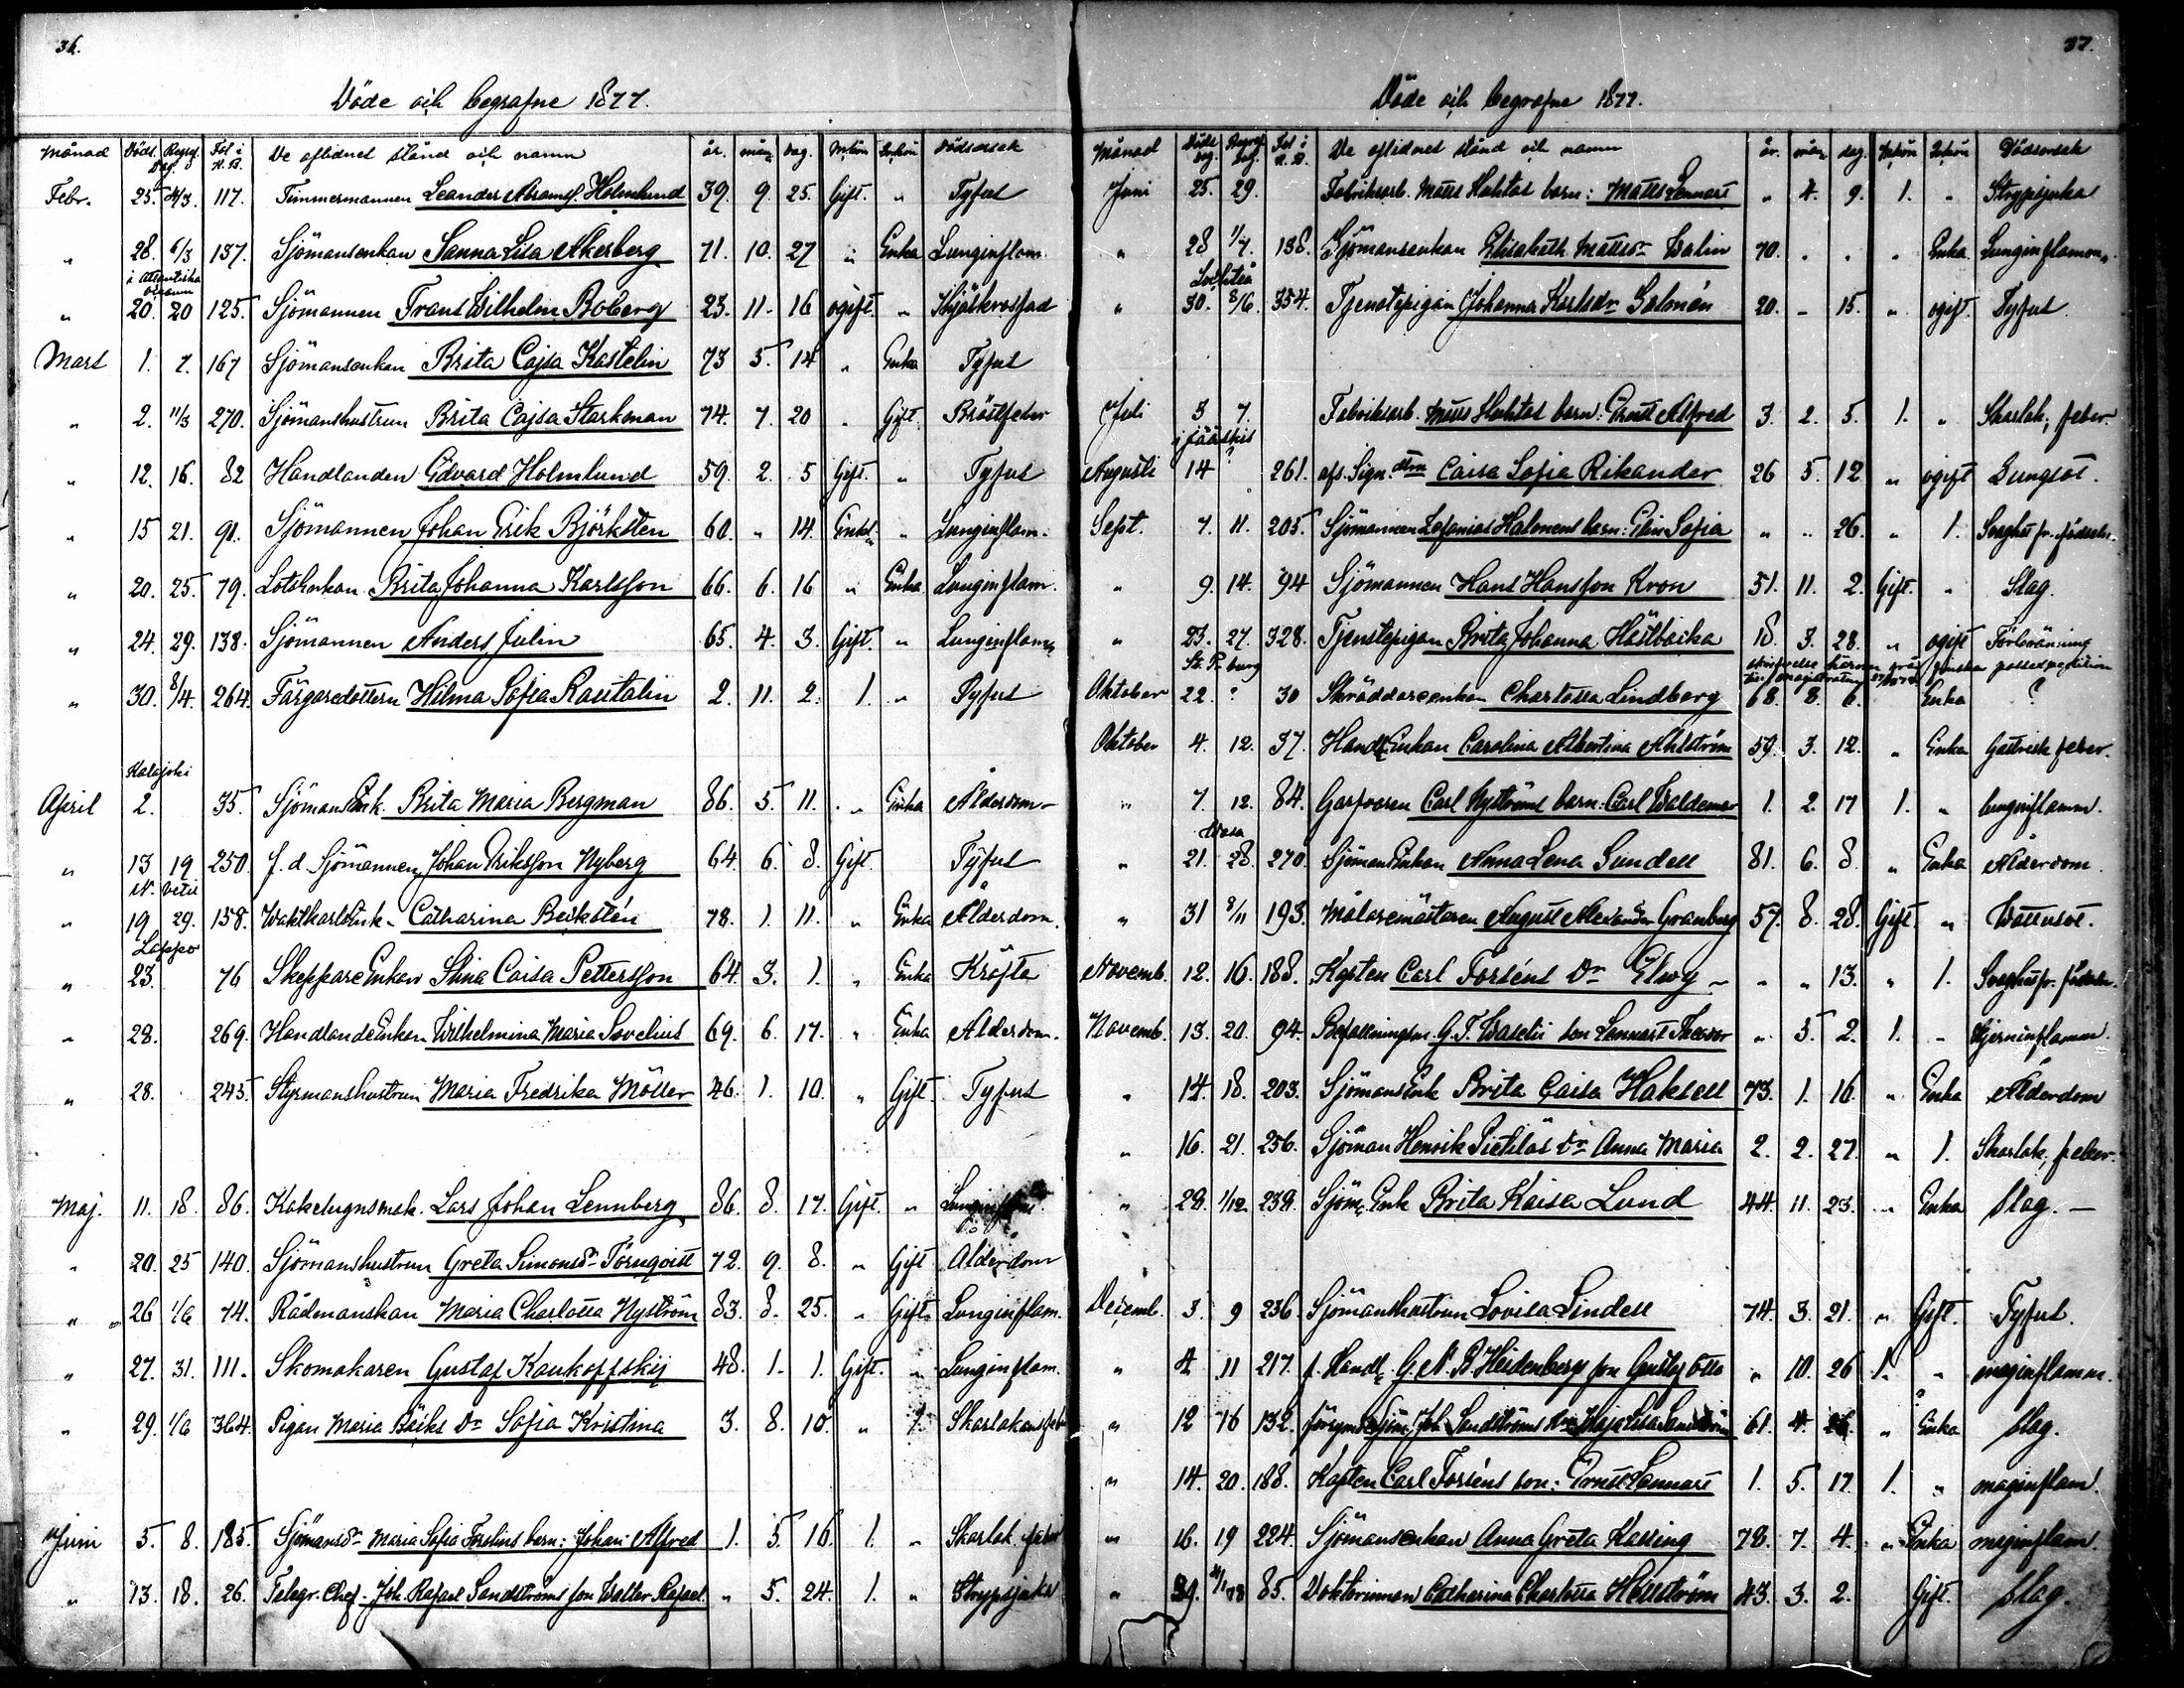 36.
Döde och begrafne 1877.
Månad Döds. Begraf. Dag. Fol i K.B. De aflidnes stånd och namn år. mån. dag. Mkön Qvkön Dödsorsak
Febr. 25. 4/3. 117. Timmermannen Leander Abramss. Holmlund 39. 9. 25. Gift. " Tyfus
" 28. 6/3 137. Sjömansenkan Sanna Lisa Åkerberg 71. 10. 27 " Enka Lunginflam.
i Atlantiska oceanen
" 20. 20 125. Sjömannen Frans Wilhelm Boberg 23. 11. 16 ogift. "
Mars 1. 7. 167 Sjömansenkan Brita Cajsa Kastelin 73 5. 14 " Enka Tyfus
" 2. 11/3 270. Sjömanshustrun Brita Cajsa Starkman 74. 7. 20 " Gift. Bröstfeber
" 12. 16. 82 Handlanden Edvard Holmlund 59. 2. 5 Gift. " Tyfus
" 15 21. 91. Sjömannen Johan Erik Björksten 60. " 14. Enkl. " Lunginflam.
" 20. 25. 79. Lotsenkan Brita Johanna Karlsson 66. 6. 16 " Enka Lunginflam.
" 24. 29. 138. Sjömannen Anders Julin 65. 4. 3. Gift. " Lunginflam.
" 30. 8/4. 264. Färgaredottern Hilma Sofia Rautalin 2. 11. 2. 1. " Tyfus
Kalajoki
April 2. 35. Sjömans Enk. Brita Maria Bergman 86. 5. 11. " Enka Ålderdom
" 13 19 250. f. d. Sjömannen Johan Eriksson Nyberg 64. 6. 8. Gift. Tyfus
N. Vetil
" 19 29. 158. Waktkarls Enk. Catharina Beckstén 78. 1. 11. " Enka Ålderdom.
Lappo
" 23. 76 Skeppare Enkan Stina Caisa Pettersson 64. 3. 1. " Enka Kräfta
" 28. 269. Handlande Enkan Wilhelmina Maria Sovelius 69. 6. 17. " Enka Ålderdom.
" 28. 245. Styrmanshustrun Maria Fredrika Möller 46. 1. 10. " Gift. Tyfus
Maj. 11. 18. 86. Kakelugnsmak. Lars Johan Lennberg 86. 8. 17. Gift. " Lunginflam.
" 20. 25 140. Sjömanshustrun Greta Simonsdr Törnqvist 72. 9. 8. " Gift Ålderdom
" 26 1/6 74. Rådmanskan Maria Charlotta Nyström 83. 8. 25. " Gift. Lunginflam.
" 27. 31. 111. Skomakaren Gustaf Kaukoffskij 48. 1. 1. Gift. " Lunginflam.
" 29. 1/6 364. Pigan Maria Bäcks dr Sofia Kristina 3. 8. 10. " 1. Skarlakansfeb
Juni 5. 8. 185. Sjömansdr Maria Sofia barn: Johan Alfred 1. 5. 16. 1. " Skarlak. feber
" 13. 18. 26. Telegr. Chef. Joh. Rafael Sandströms son Walter Rafael. " 5. 24. 1. " Strypsjuka
37.
Döde och begrafne 1877.
Månad Döds dag. Begraf. dag. Fol i K.B. De aflidnes stånd och namn år. mån dag. Mkön Qvkön Dödsorsak
Juni 25. 29. Fabriksarb. Matts Huhtas barn: Matts Lennart " 4. 9. 1. " Strypsjuka
" 28 1/7. 138. Sjömansenkan Elisabeth Mattsdr Walin 70. " " " Enka Lunginflamm.
Lochteå
" 30. 8/6. 354. Tjenstepigan Johanna Karlsdr Salmén 20. " 15. " ogift. Tyfus
Juli 3 7. Fabriksarb. Matts Huhtas barn: Ernst Alfred 3. 2. 5. 1. " Skarlak, feber.
i Jääskis
Augusti 14 ? 261. afs. Sign. dtrn Caisa Sofia Rikander 26 5. 12. " ogift Lungsot.
Sept. 7. 11. 205. Sjömannen Zefanias Halonens barn: Elin Sofia " " 26. " 1. Svaghet fr. födseln.
" 9. 14. 94 Sjömannen Hans Hansson Kron 51. 11. 2. Gift. " Slag.
" 23. 27. 328. Tjenstepigan Brita Johanna Hästbacka 18. 3. 28. " ogift Förbränning
St. P. burg
Oktober 22. ? 30 Skräddareenkan Charlotta Lindberg 68. 8. 6. Enka ?
Oktober 4. 12. 37. Handl. Enkan Carolina Albertina Ahlström 59. 3. 12. " Enka Gastrisk feber.
" 7. 12. 84. Garfvaren Carl Nyströms barn: Carl Waldemar 1. 2. 17 1. " lunginflamm.
Wasa
" 21. 28. 270. Sjömans Enkan Anna Lena Sundell 81. 6. 8. " Enka Ålderdom.
" 31 8/11 193. Målaremästaren August Alexander Granberg 57. 8. 28. Gift " Wattusot.
Novemb. 12. 16. 188. Kapten Carl Forséns dr Elwy " " 13. " 1. Svaghet fr. födseln.
Novemb. 13. 20. 94. Befallningsm. G. T. son Lennart Theodor " 5. 2. 1. " Hjerninflamm.
" 14. 18. 203. Sjömans Enk Brita Caisa Haksell 73. 1. 16. " Enka Ålderdom
" 16. 21. 256. Sjöman Henrik Pietiläs dr Anna Maria 2. 2. 27. " 1. Skarlak, feber.
" 28. 1/12. 239. Sjöm. Enk Brita Kaisa Lund 44. 11. 23. " Enka Slag.
Decemb. 3. 9 236 Sjömanshustrun Lovisa Lindell 74. 3. 21. " Gift. Tyfus.
" 4 11 217. f. Handl. G. A. B. Heidenbergs son Gustaf Otto " 10. 26 1. " maginflamm.
" 12 16 132. Joh Sandströms 61. 4. " Enka Slag.
" 14. 20. 188. Kapten Carl Forséns son: Ernst Lennart 1. 5. 17 1. " maginflam.
" 16. 19 224. Sjömansenkan Anna Greta Kasling 78. 7. 4. " Enka maginflam.
" 29. 85. Doktorinnan Catharina Charlotta Hellström 43. 3. 2. Gift. Slag.